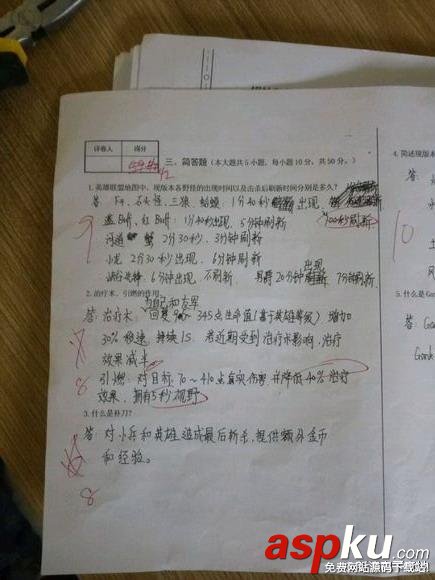 评卷人 得分
三、简答题（本大题共5小题，每小题10分，共50分。）
1.英雄联盟地图中，现版本各野怪的出现时间以及击杀后刷新时间分别是多久？
答：F4、石头怪、三狼、蛤蟆：1分40秒出现，100秒刷新
蓝Buff、红Buff：1分40秒出现，5分钟刷新
河道蟹 2分30秒，3分钟刷新
小龙 2分30秒出现，6分钟刷新
峡谷先锋，6分钟出现，不刷新 男爵20分钟出现 7分钟刷新
9
2.治疗术、引燃的作用。
与自己和友军
答：治疗术：回复90~345点生命值(基于英雄等级)增加
30%移速，持续1S。若近期受到治疗术影响，治疗
效果减半
引燃：对目标70~410点真实伤害并降低40%治疗
效果，拥有5秒视野
8
3.什么是补刀？
答：对小兵和英雄造成最后斩杀，提供额外金币
和经验。
8
4.简述现
答
10
5.什么是Ga
答：Gan
Gank
aspku.com
免费网站源码下载站！